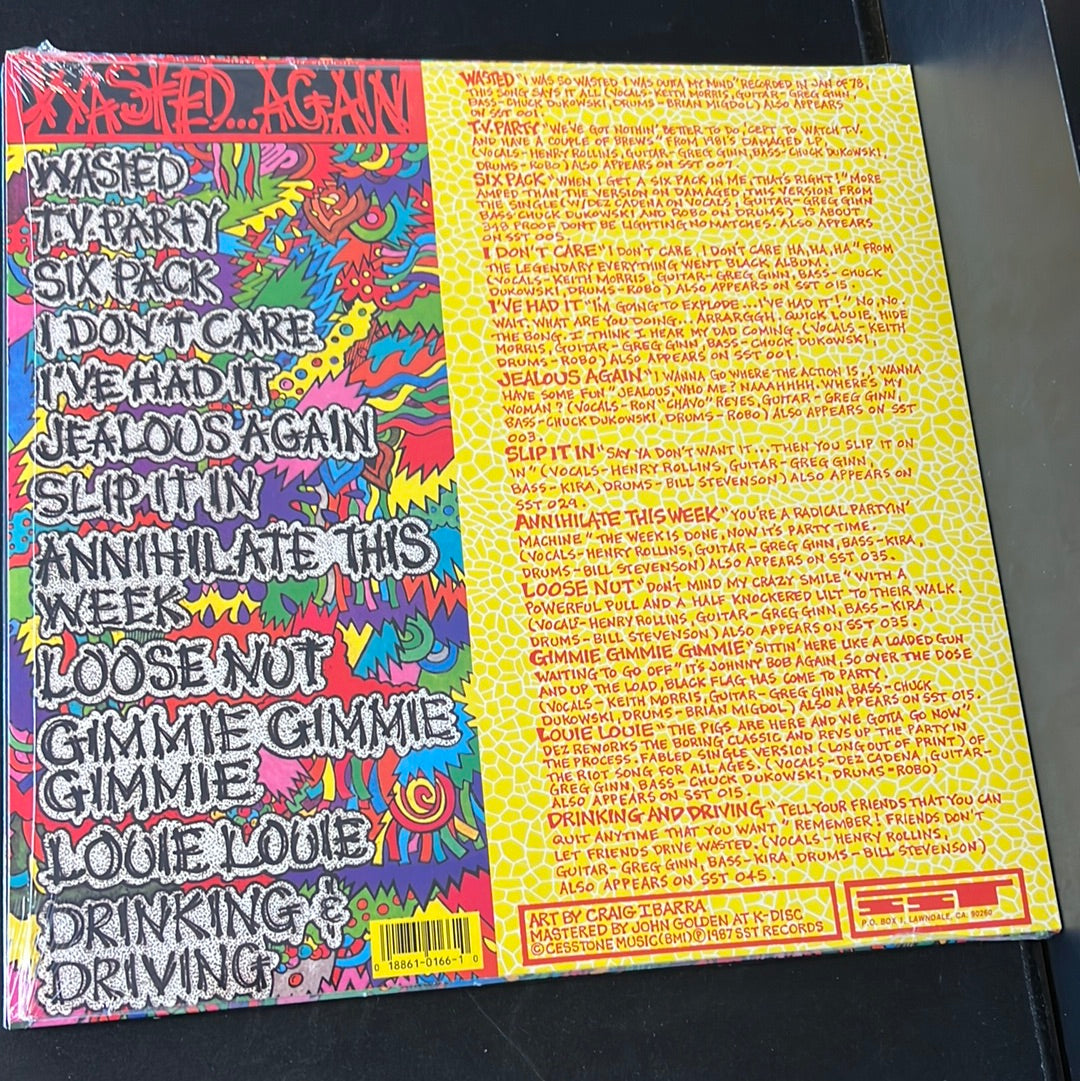 WASTED...AGAIN
WASTED
T.V. PARTY
SIX PACK
I DON'T CARE
I'VE HAD IT
JEALOUS AGAIN
SLIP IT IN
ANNIHILATE THIS
WEEK
LOOSE NUT
GIMMIE GIMMIE
GIMMIE
LOUIE LOUIE
DRINKING &
DRIVING
0 18861-0166-1 0
WASTED "I WAS SO WASTED I WAS OUTTA MY MIND" RECORDED IN JAN OF 78,
THIS SONG SAYS IT ALL (VOCALS-KEITH MORRIS, GUITAR-GREG GINN,
BASS-CHUCK DUKOWSKI, DRUMS-BRIAN MIGDOL) ALSO APPEARS
ON SST 001.
T.V. PARTY "WE'VE GOT NOTHIN', BETTER TO DO 'CEPT TO WATCH T.V.
AND HAVE A COUPLE OF BREWS" FROM 1981'S DAMAGED LP,
(VOCALS-HENRY ROLLINS, GUITAR-GREG GINN, BASS-CHUCK DUKOWSKI,
DRUMS-ROBO) ALSO APPEARS ON SST 007.
SIX PACK "WHEN I GET A SIX PACK IN ME, THAT'S RIGHT!" MORE
AMPED THAN THE VERSION ON DAMAGED, THIS VERSION FROM
THE SINGLE (W/DEZ CADENA ON VOCALS, GUITAR-GREG GINN
BASS-CHUCK DUKOWSKI AND ROBO ON DRUMS) IS ABOUT
348 PROOF DONT BE LIGHTING NO MATCHES. ALSO APPEARS
ON SST 005.
I DON'T CARE "I DON'T CARE, I DON'T CARE HA, HA, HA" FROM
THE LEGENDARY EVERYTHING WENT BLACK ALBUM.
(VOCALS-KEITH MORRIS, GUITAR-GREG GINN, BASS-CHUCK
DUKOWSKI, DRUMS-ROBO) ALSO APPEARS ON SST 015.
I'VE HAD IT "I'M GOING TO EXPLODE...I'VE HAD IT!" NO, NO.
WAIT, WHAT ARE YOU DOING.. ARRARGGH. QUICK LOUIE, HIDE
THE BONG. I THINK I HEAR MY DAD COMING. (VOCALS-KEITH
MORRIS, GUITAR-GREG GINN, BASS-CHUCK DUKOWSKI,
DRUMS-ROBO) ALSO APPEARS ON SST 001.
JEALOUS AGAIN "I WANNA, GO WHERE THE ACTION IS, I WANNA
HAVE SOME FUN" JEALOUS, WHO ME? NAAAHHHH. WHERE'S MY
WOMAN? (VOCALS-RON "CHAVO" REYES, GUITAR-GREG GINN,
BASS-CHUCK DUKOWSKI, DRUMS-ROBO) ALSO APPEARS ON SST
003.
SLIP IT IN "SAY YA DON'T WANT IT...THEN YOU SLIP IT ON
IN" (VOCALS-HENRY ROLLINS, GUITAR-GREG GINN,
BASS-KIRA, DRUMS-BILL STEVENSON) ALSO APPEARS ON
SST 029.
ANNIHILATE THIS WEEK "YOU'RE A RADICAL PARTYIN'
MACHINE" THE WEEK IS DONE, NOW IT'S PARTY TIME.
(VOCALS-HENRY ROLLINS, GUITAR-GREG GINN, BASS-KIRA,
DRUMS-BILL STEVENSON) ALSO APPEARS ON SST 035.
LOOSE NUT "DON'T MIND MY CRAZY SMILE" WITH A
POWERFUL PULL AND A HALF KNOCKERED LILT TO THEIR WALK.
(VOCALS-HENRY ROLLINS GUITAR-GREG GINN, BASS-KIRA,
DRUMS-BILL STEVENSON) ALSO APPEARS ON SST 035.
GIMMIE GIMMIE GIMMIE "SITTIN' HERE LIKE A LOADED GUN
WAITING TO GO OFF" IT'S JOHNNY BOB AGAIN, SO OVER THE DOSE
AND UP THE LOAD, BLACK FLAG HAS COME TO PARTY.
(VOCALS-KEITH MORRIS, GUITAR-GREG GINN, BASS-CHUCK
DUKOWSKI, DRUMS-BRIAN MIGDOL) ALSO APPEARS ON SST 015.
LOUIE LOUIE "THE PIGS ARE HERE AND WE GOTTA GO NOW"
DEZ REWORKS THE BORING CLASSIC AND REVS UP THE PARTY IN
THE PROCESS. FABLED SINGLE VERSION (LONG OUT OF PRINT) OF
THE RIOT SONG FOR ALL AGES. (VOCALS-DEZ CADENA, GUITAR-
GREG GINN, BASS-CHUCK DUKOWSKI, DRUMS-ROBO)
ALSO APPEARS ON SST 015.
DRINKING AND DRIVING "TELL YOUR FRIENDS THAT YOU CAN
QUIT ANYTIME THAT YOU WANT" REMEMBER! FRIENDS DON'T
LET FRIENDS DRIVE WASTED. (VOCALS-HENRY ROLLINS,
GUITAR-GREG GINN, BASS-KIRA, DRUMS-BILL STEVENSON)
ALSO APPEARS ON SST 045.
ART BY CRAIG IBARRA
MASTERED BY JOHN GOLDEN AT K-DISC
© CESSTONE MUSIC (BMI) ℗ 1987 SST RECORDS
SST
P.O. BOX 1, LAWNDALE, CA. 90260